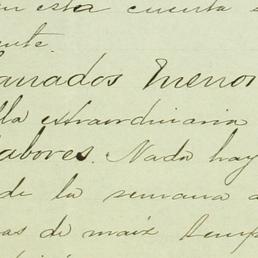 en esta cuenta s
ente.
Ganados menor
lla extraordinaria
labores. Nada hay
de la semana a
as de maix temp